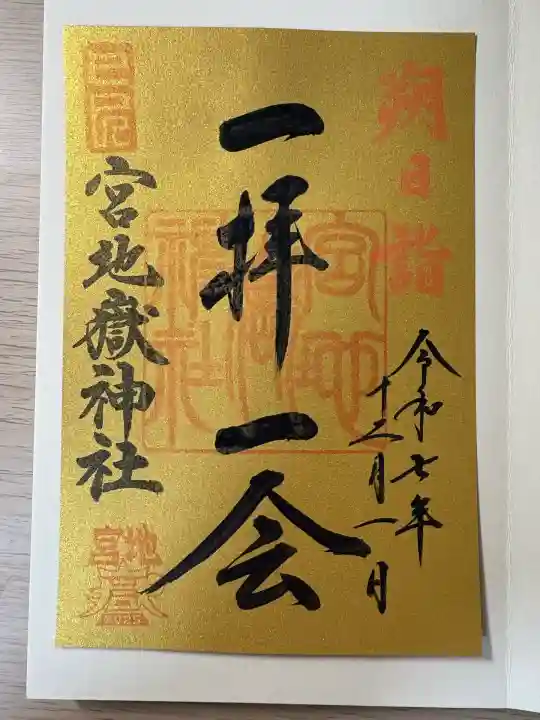 朔日詣
令和七年
十二月一日
一拝一会
宮地嶽神社
宮地嶽神社
宮地
2025